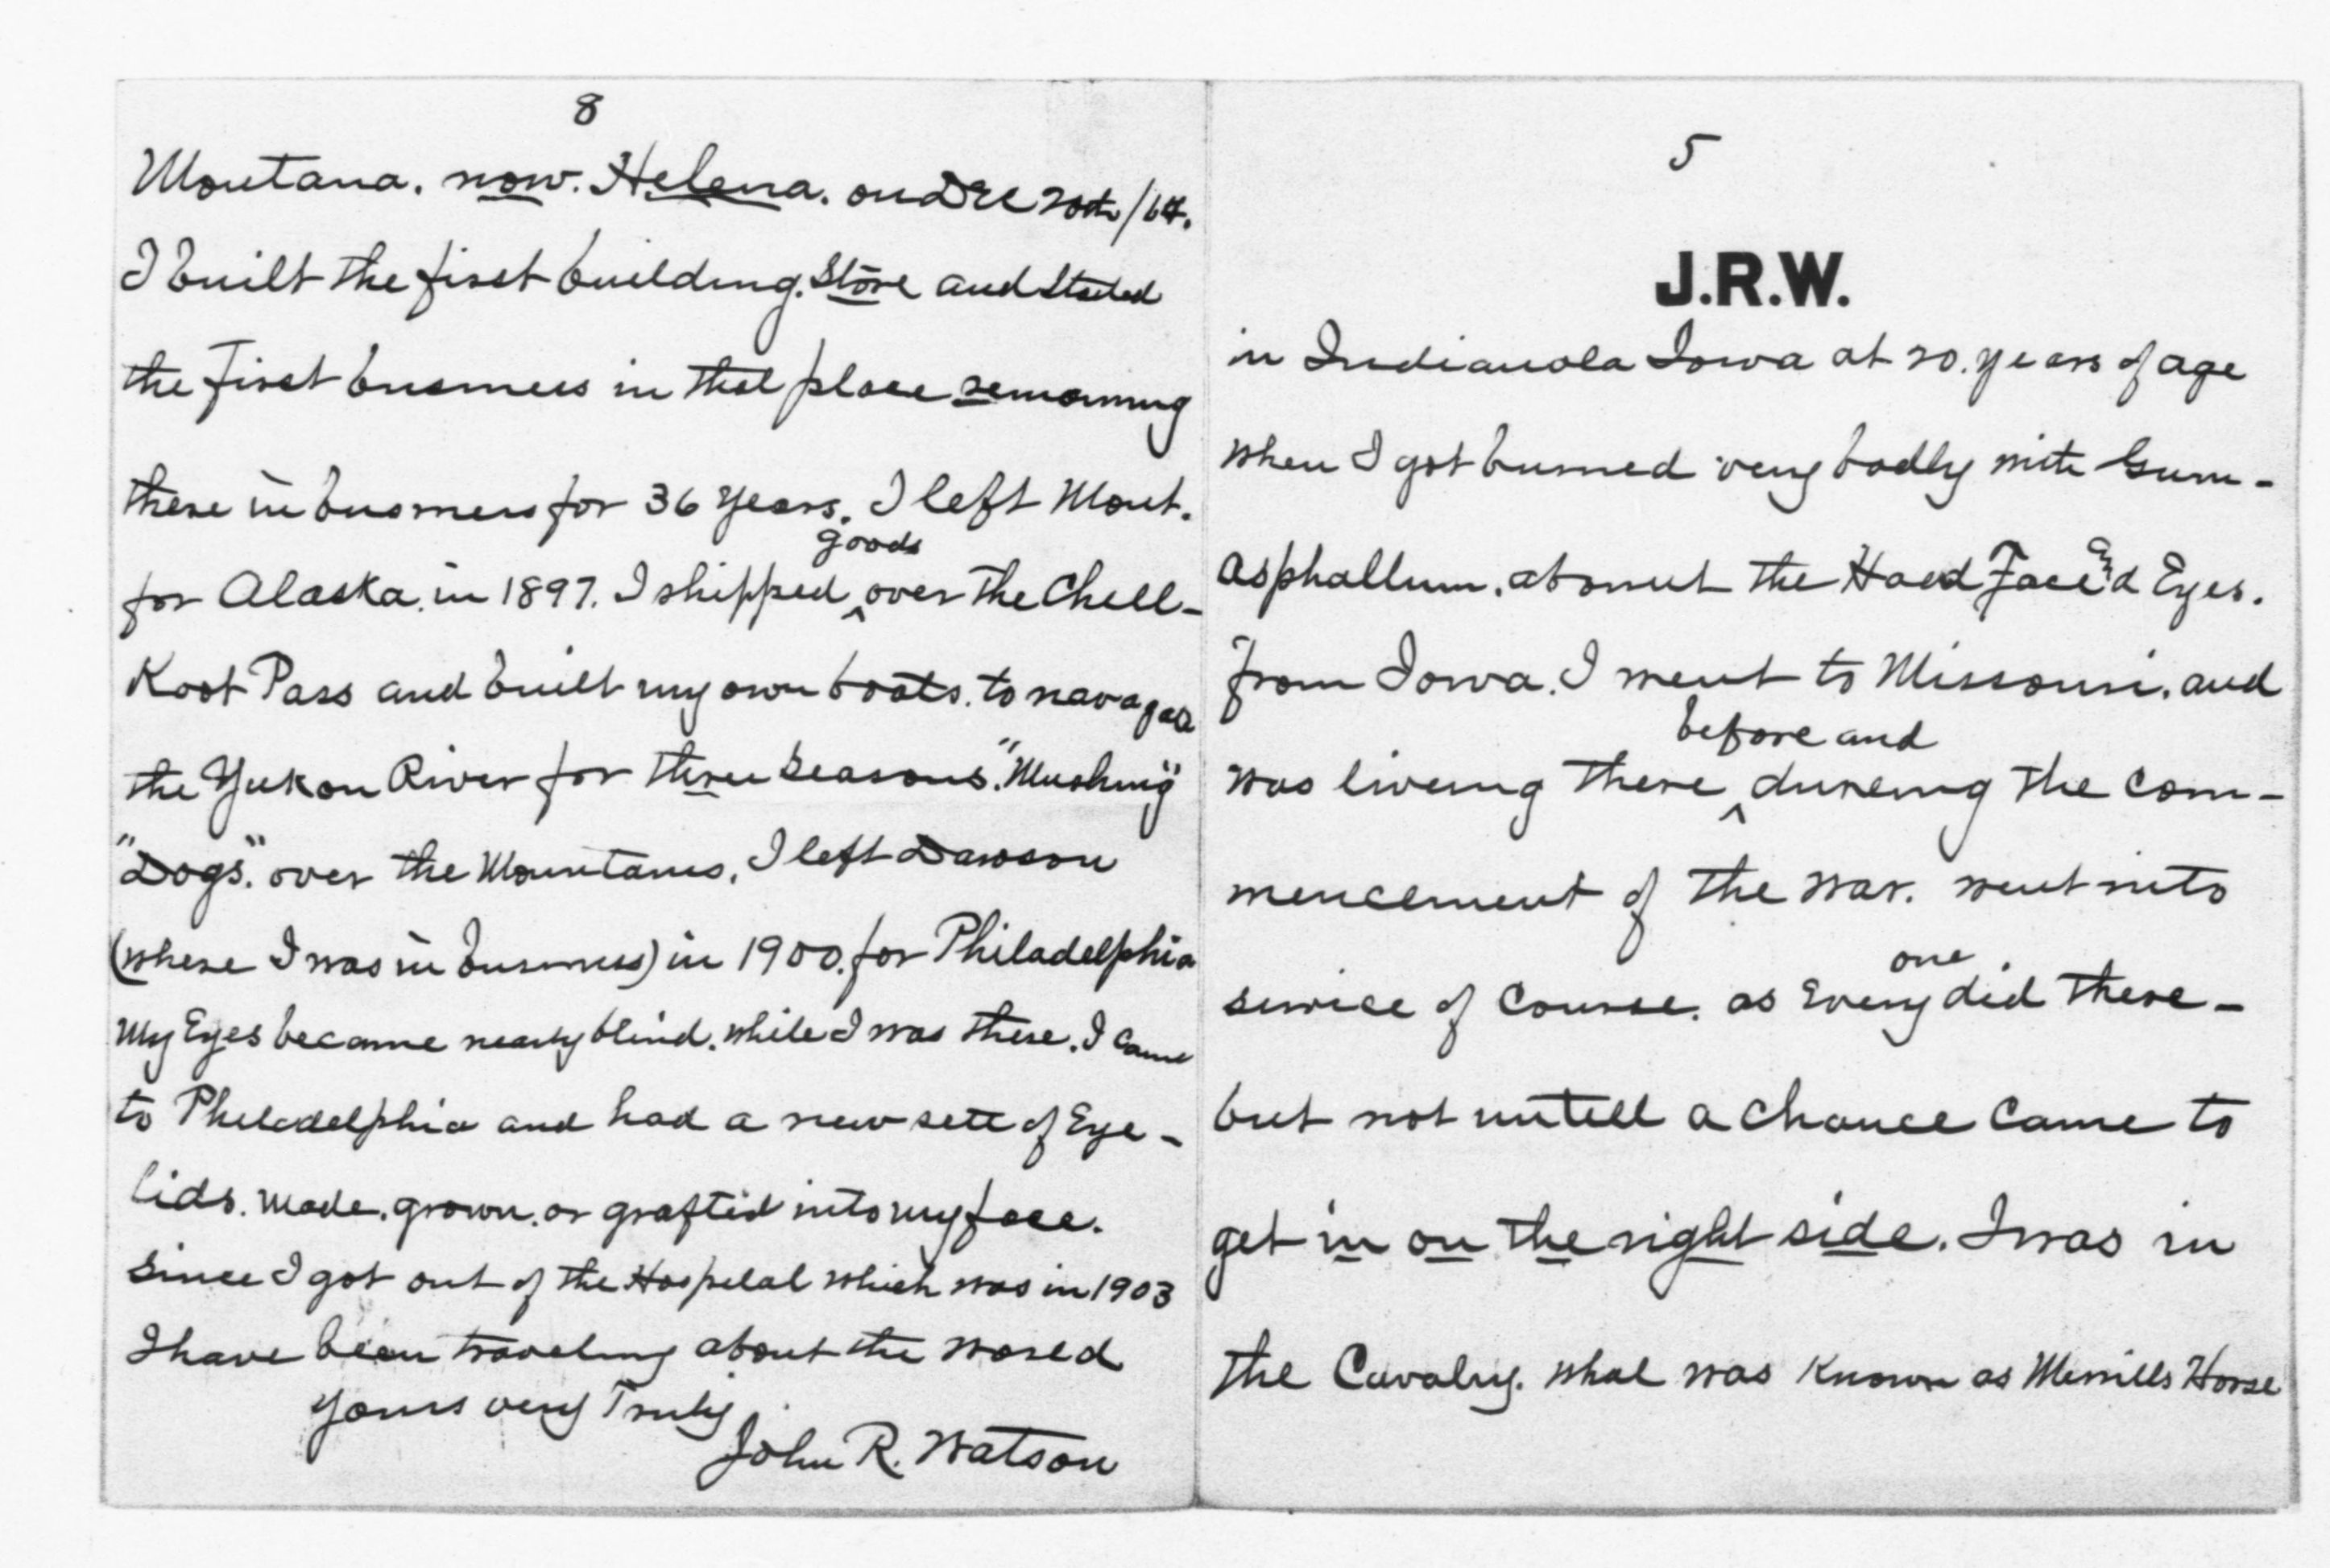 8
Montana. now. Helena. on Dec 20th/64.
I built the first building. Store and started
the first busmess in that place remaining
there in busmess for 36 years. I left Mont.
goods
for Alaska. in 1897. I shipped ^ over the Chell-
Koot Pass and built my own boats. to navagate
the Yukon River for three seasons. "Mushing"
"Dogs." over the Mountains, I left Dawson
(where I was in busmess) in 1900. for Philadelphia
My Eyes became nearly blind. while I was there. I came
to Philadelphia and had a new sett of Eye-
lids. made. grown. or grafted into my face.
Since I got out of the Hospital which was in 1903
I have been traveling about the world
yours very Truly
John R. Watson
5
J.R.W.
in Indianola Iowa at 20. years of age
when I got burned very badly with Gum-
asphaltum. about the Head Face and Eyes.
from Iowa. I went to Missouri. and
before and
was liveing there ^ dureing the com-
mencement of the war. went into
one
service of course. as Every did there-
but not untell a chance came to
get in on the right side. I was in
the Cavalry. what was Known as Merrills Horse